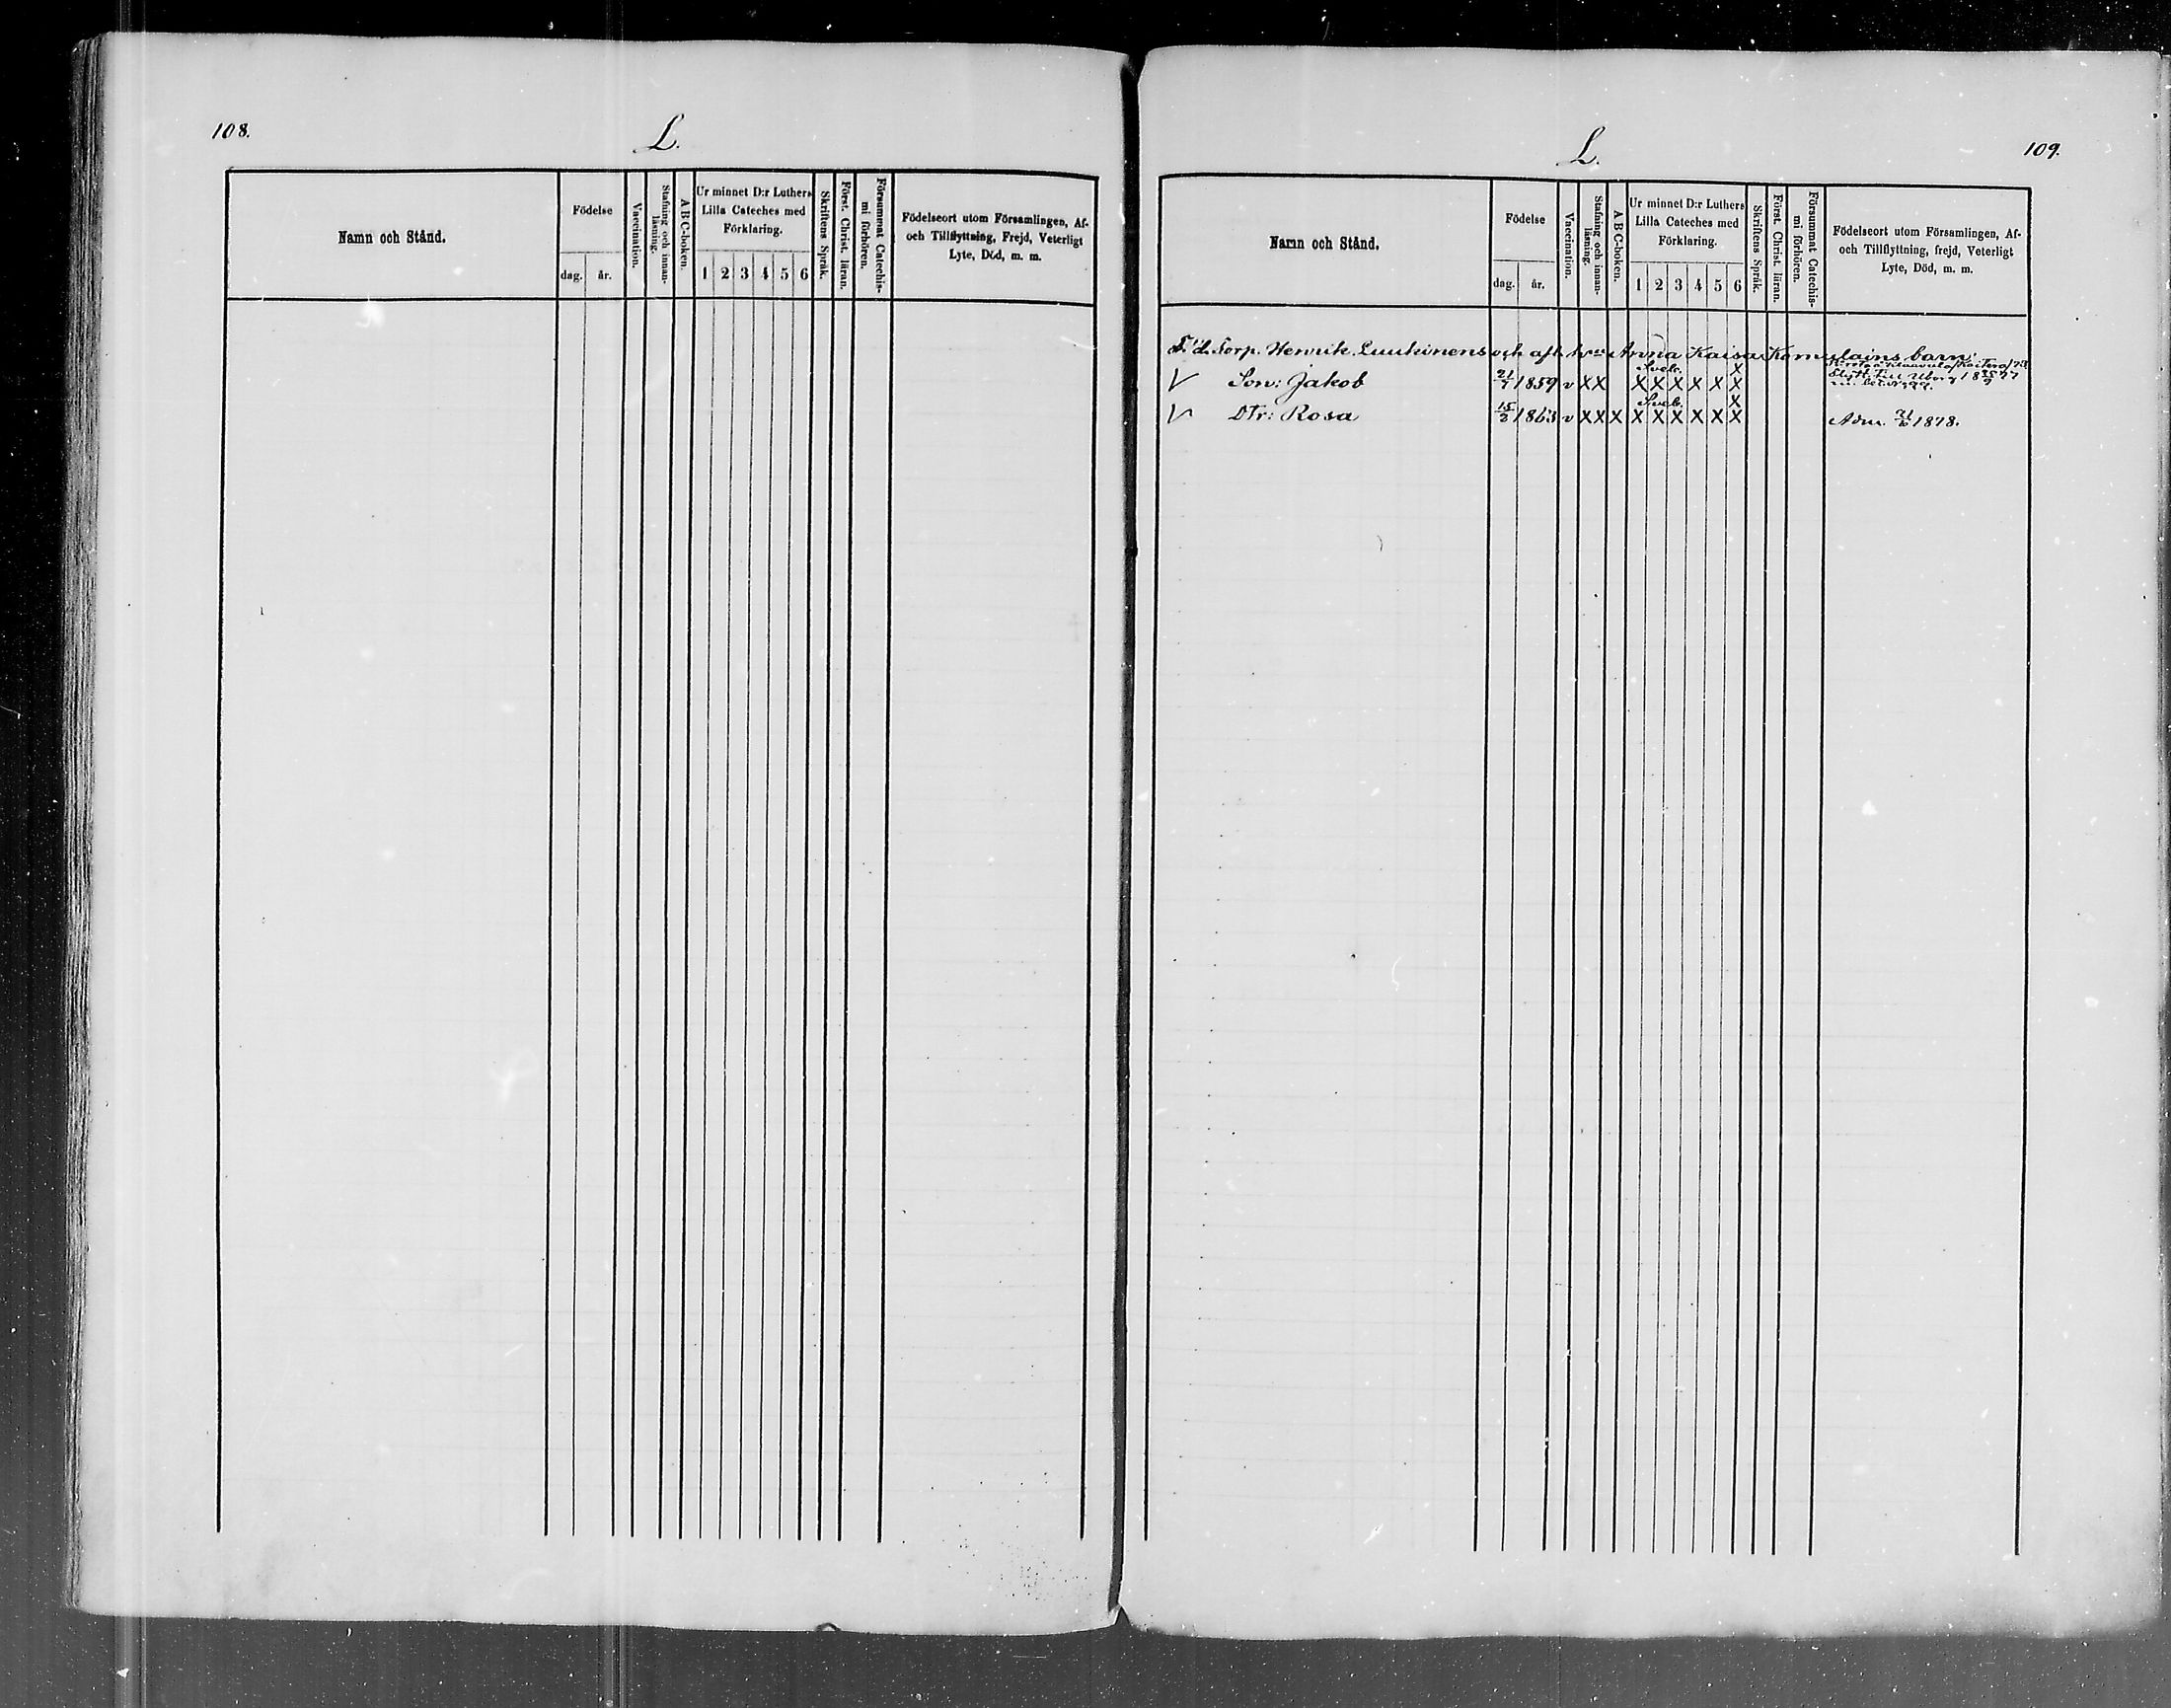 108.
L.
Namn och Stånd.
Födelse
dag.
år.
Vaccination.
Stafning och innan-
läsning.
A B C-boken.
Ur minnet D:r Luthers
Lilla Cateches med
Förklaring.
1 2 3 4 5 6
Skriftens Språk.
Först. Christ. läran.
Försummat Catechis-
mi förhören.
Födelseort utom Församlingen, Af-
och Tillflyttning, Frejd, Veterligt
Lyte, Död, m. m.
L.
109.
Namn och Stånd.
Födelse
dag.
år.
Vaccination.
Stafning och innan-
läsning.
A B C-boken.
Ur minnet D:r Luthers
Lilla Cateches med
Förklaring.
1 2 3 4 5 6
Skriftens Språk.
Först. Christ. läran.
Försummat Catechis-
mi förhören.
Födelseort utom Församlingen, Af-
och Tillflyttning, frejd, Veterligt
Lyte, Död, m. m.
F. d. Torp. Henrik Luukinens och afl. Anna Kaisa Komulains barn:
Sveb. X
V Son: Jakob 21/7 1859 v X X X X X X X X
Flytt. till
Sveb. X
V Dtr: Rosa 15/2 1863 v X X X X X X X X X Adm. 1878.